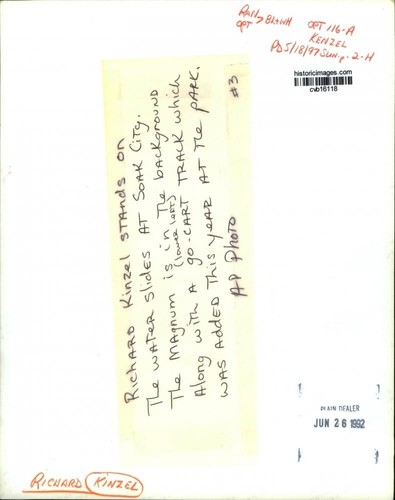 OPT 116-A
OPT
KENZEL
PD 5/18/97 Sun p. 2-H
historicimages.com
cvb16118
RICHARD Kinzel STANDS ON
The WATER SLIDES AT SOAK CITY.
The MAGNUM is in The background
(lower left)
Along with A go-CART TRACK which
WAS ADDED This yEAR AT The PARK.
AP Photo
#3
PLAIN DEALER
JUN 26 1992
RICHARD KINZEL